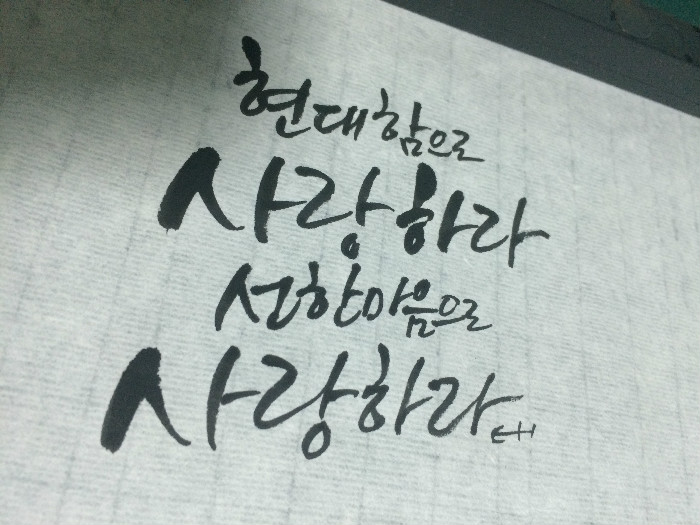 현대함으로
사랑하라
선한마음으로
사랑하라